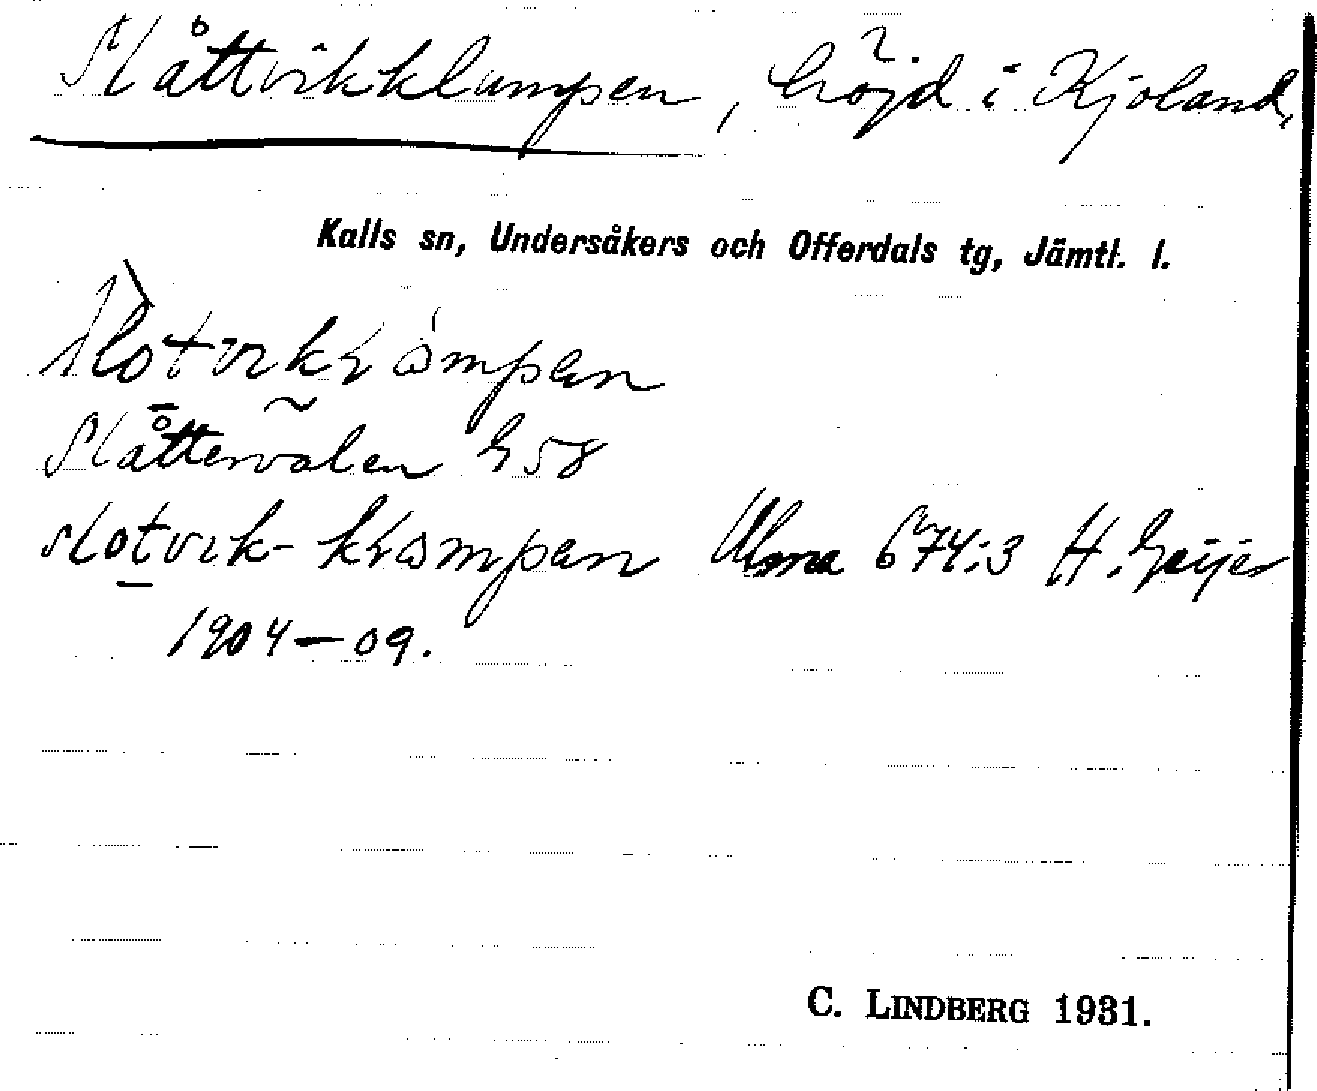 Slåttvikklumpen, höjd i Kjoland,
Kalls sn, Undersåkers och Offerdals tg, Jämtl. l.
Slåttervalen G58
slotvik- Ulma 674:3 H. Geijer
1904–09.
C. LINDBERG 1931.